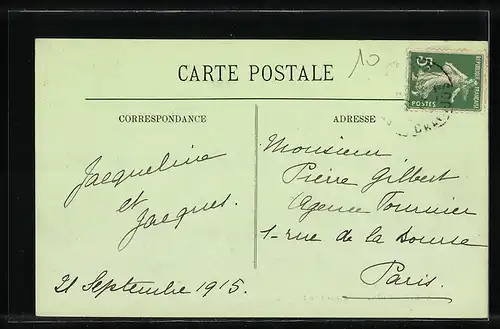 10
CARTE POSTALE
CORRESPONDANCE
ADRESSE
5c
REPUBLIQUE FRANÇAISE
POSTES
Jacqueline
et
Jacques.
21 Septembre 1915.
Monsieur
Pierre Gilbert
Agence Fournier
1 - rue de la Bourse
Paris.